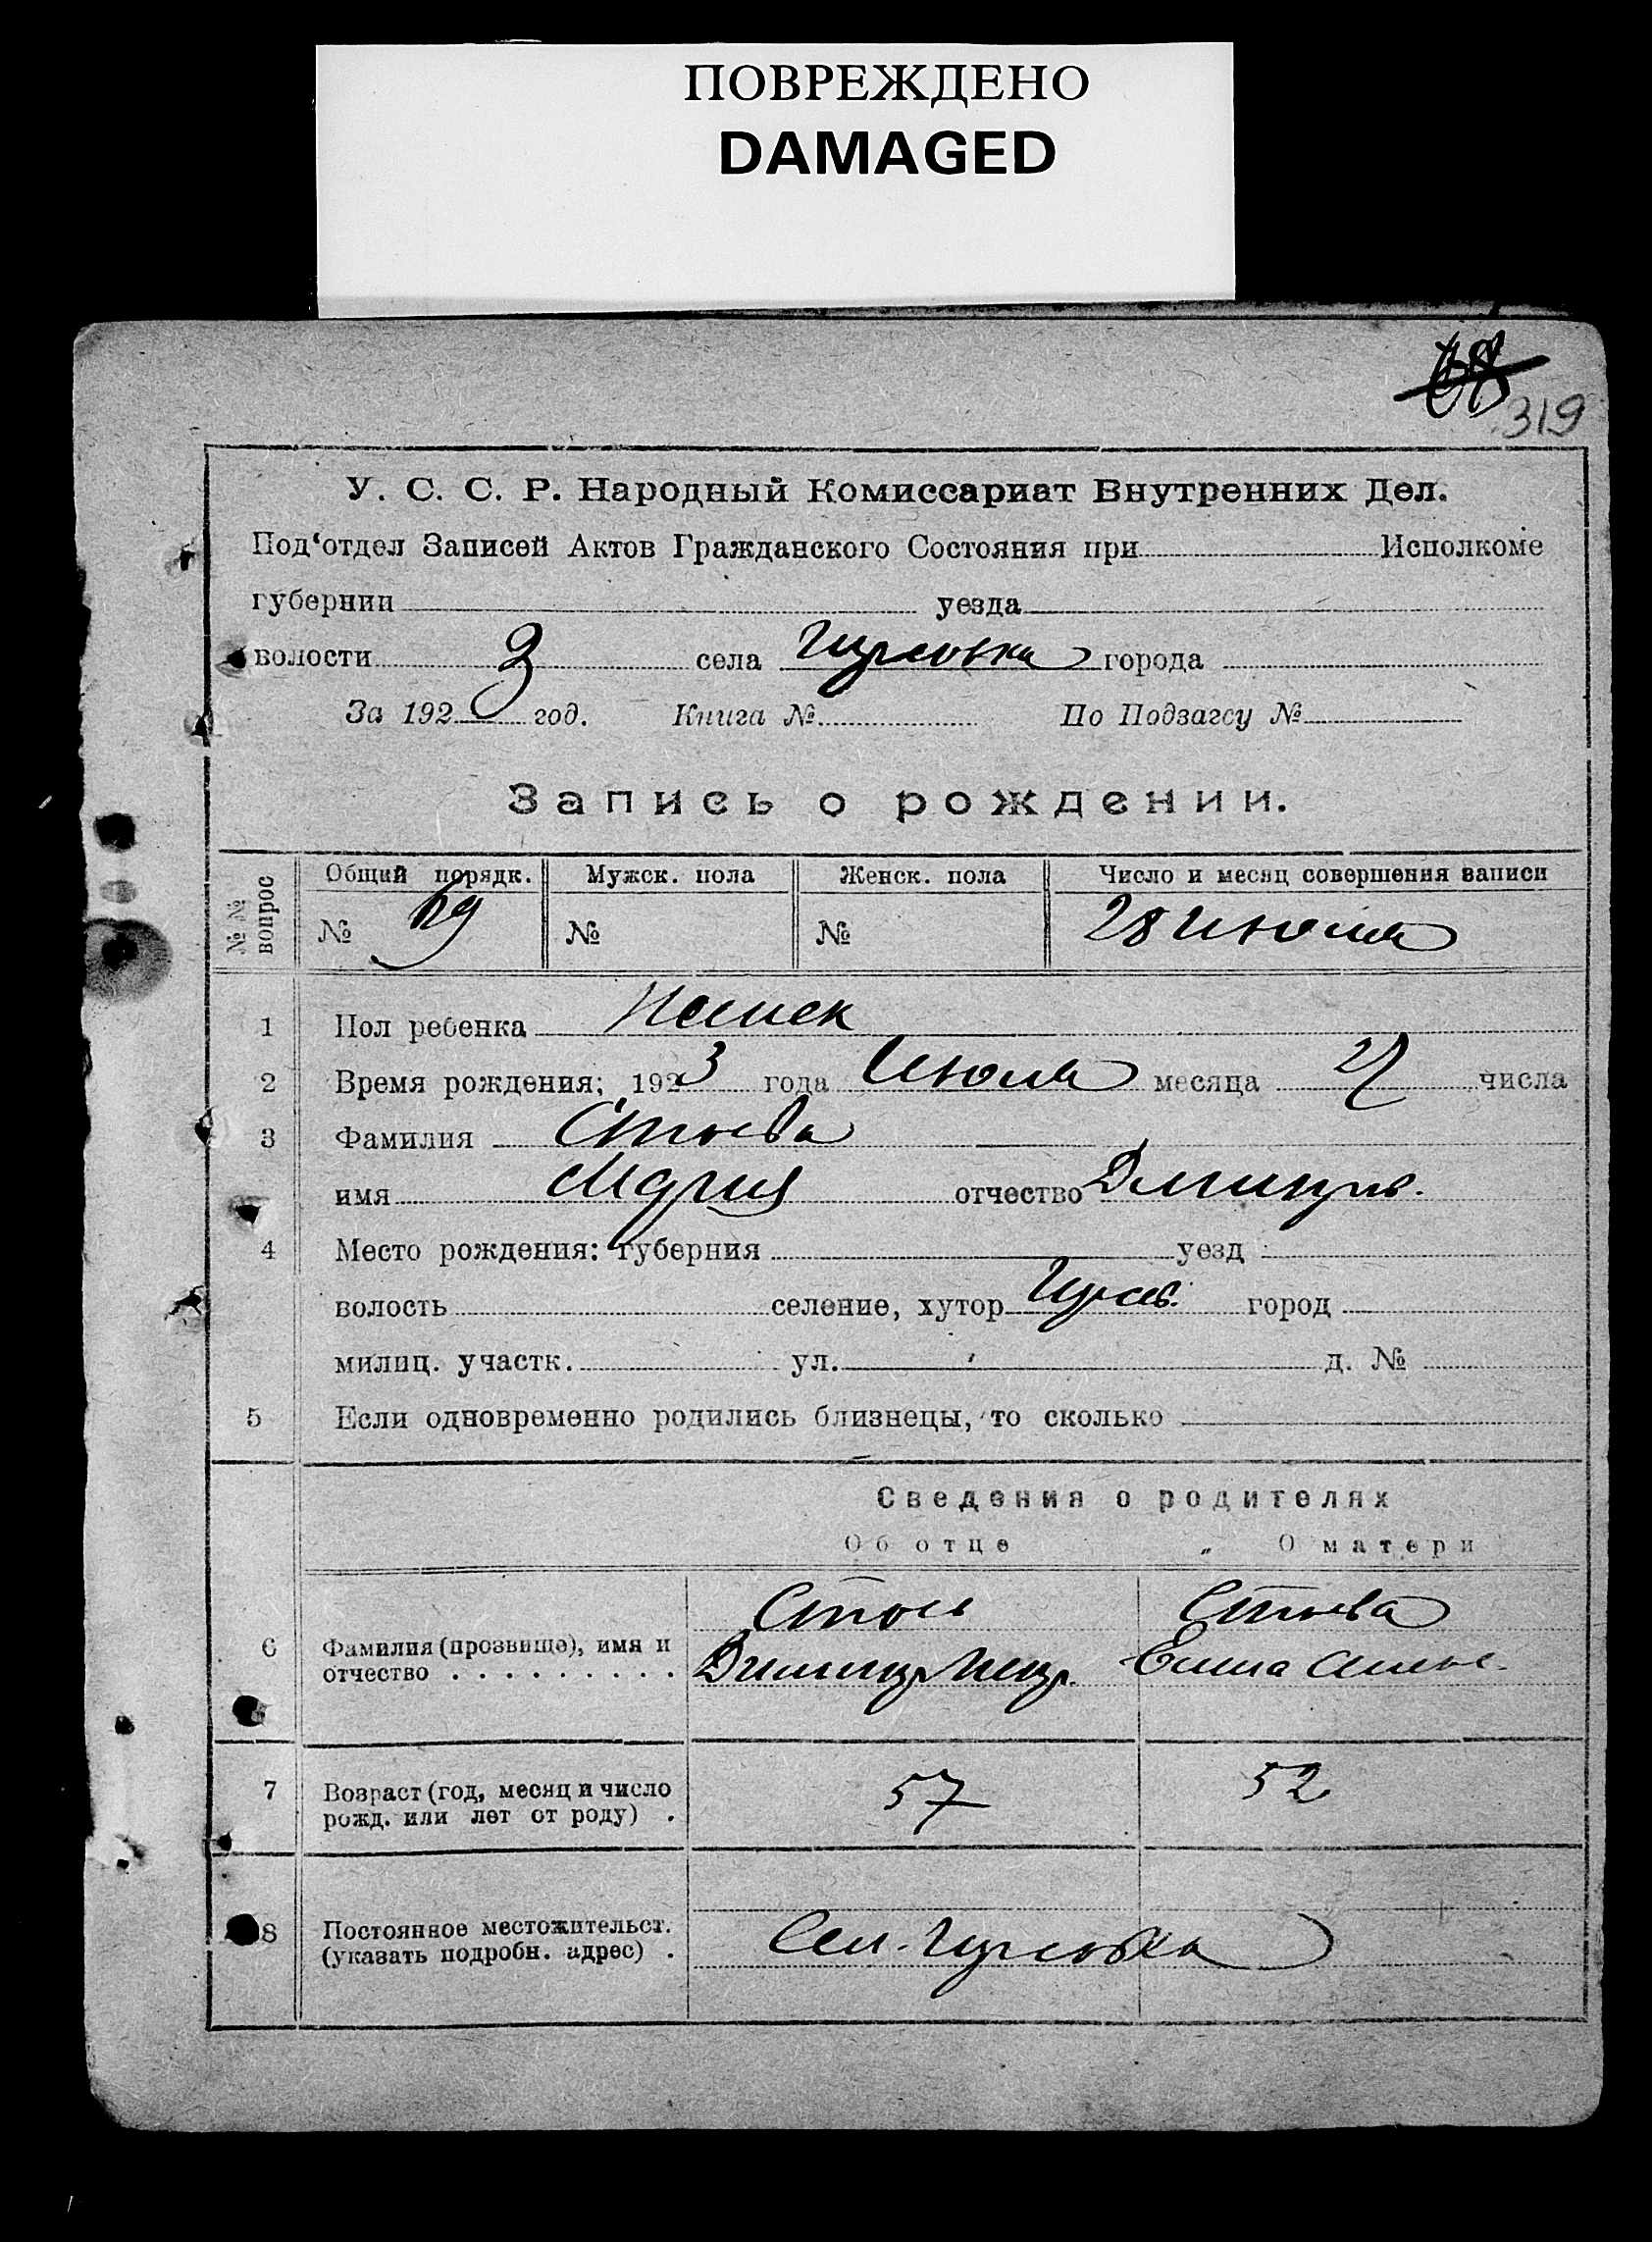 ПОВРЕЖДЕНО
DAMAGED
319
У. С. С. Р. Народный Комиссариат Внутренних Дел.
Под‘отдел Записей Актов Гражданского Состояния при Исполкоме
губернии уезда
волости села города
За 1923 год. Книга № По Подзагсу №
Запись о рождении.
№№ вопрос Общий порядк. Мужск. пола Женск. пола Число и месяц совершения записи
№ 69 № № 28 Июля
1 Пол ребенка Женск
2 Время рождения; 1923 года Июля месяца 27 числа
3 Фамилия Стоева
имя Мария отчество Дмитрв.
4 Место рождения: губерния уезд
волость селение, хутор город
милиц. участк. ул. д. №
5 Если одновременно родились близнецы, то сколько
Сведения о родителях
Об отце „ О матери
Стоев Стоева
6 Фамилия (прозвище), имя и
отчество Димитр Петр.
7 Возраст (год, месяц и число
рожд. или лет от роду) . 57 52
8 Постоянное местожительст.
(указать подробн. адрес) . Сел.